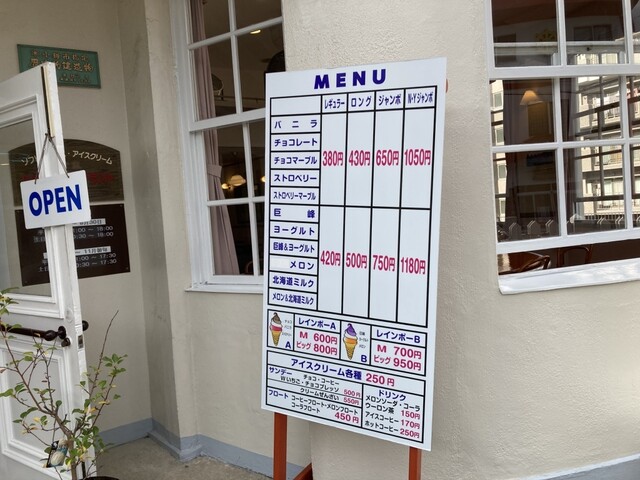 MENU
レギュラー ロング ジャンボ N・Yジャンボ
バニラ
チョコレート
チョコマーブル 380円 430円 650円 1050円
ストロベリー
ストロベリーマーブル
巨峰
ヨーグルト
巨峰&ヨーグルト 420円 500円 750円 1180円
メロン
北海道ミルク
メロン&北海道ミルク
レインボーA レインボーB
M 600円 M 700円
ビッグ 800円 ビッグ 950円
A B
アイスクリーム各種 250円
サンデー チョコ・コーヒー
500円
クリームぜんざい 550円
フロート コーヒーフロート・メロンフロート
コーラフロート 450円
ドリンク
メロンソーダ・コーラ
ウーロン茶 150円
アイスコーヒー 170円
ホットコーヒー 250円
OPEN
アイスクリーム